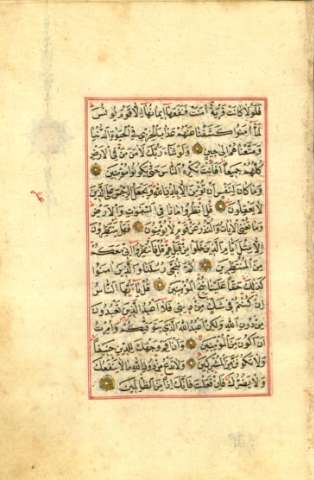 فَلَوْلَا كَانَتْ قَرْيَةٌ اٰمَنَتْ فَنَفَعَهَا اِيمَانُهَا اِلَّا قَوْمَ يُونُسَ
لَمَّا اٰمَنُوا كَشَفْنَا عَنْهُمْ عَذَابَ الْخِزْيِ فِي الْحَيٰوةِ الدُّنْيَا
وَمَتَّعْنَاهُمْ اِلٰى حِينٍ وَلَوْ شَاءَ رَبُّكَ لَاٰمَنَ مَنْ فِي الْاَرْضِ
كُلُّهُمْ جَمِيعًا اَفَاَنْتَ تُكْرِهُ النَّاسَ حَتّٰى يَكُونُوا مُؤْمِنِينَ
وَمَا كَانَ لِنَفْسٍ اَنْ تُؤْمِنَ اِلَّا بِاِذْنِ اللّٰهِ وَيَجْعَلُ الرِّجْسَ عَلَى الَّذِينَ
لَا يَعْقِلُونَ قُلِ انْظُرُوا مَاذَا فِي السَّمٰوَاتِ وَالْاَرْضِ
وَمَا تُغْنِي الْاٰيَاتُ وَالنُّذُرُ عَنْ قَوْمٍ لَا يُؤْمِنُونَ فَهَلْ يَنْتَظِرُونَ
اِلَّا مِثْلَ اَيَّامِ الَّذِينَ خَلَوْا مِنْ قَبْلِهِمْ قُلْ فَانْتَظِرُوا اِنِّي مَعَكُمْ
مِنَ الْمُنْتَظِرِينَ ثُمَّ نُنَجِّي رُسُلَنَا وَالَّذِينَ اٰمَنُوا
كَذٰلِكَ حَقًّا عَلَيْنَا نُنْجِ الْمُؤْمِنِينَ قُلْ يَا اَيُّهَا النَّاسُ
اِنْ كُنْتُمْ فِي شَكٍّ مِنْ دِينِي فَلَا اَعْبُدُ الَّذِينَ تَعْبُدُونَ
مِنْ دُونِ اللّٰهِ وَلٰكِنْ اَعْبُدُ اللّٰهَ الَّذِي يَتَوَفّٰيكُمْ وَاُمِرْتُ
اَنْ اَكُونَ مِنَ الْمُؤْمِنِينَ وَاَنْ اَقِمْ وَجْهَكَ لِلدِّينِ حَنِيفًا
وَلَا تَكُونَنَّ مِنَ الْمُشْرِكِينَ وَلَا تَدْعُ مِنْ دُونِ اللّٰهِ مَا لَا يَنْفَعُكَ
وَلَا يَضُرُّكَ فَاِنْ فَعَلْتَ فَاِنَّكَ اِذًا مِنَ الظَّالِمِينَ